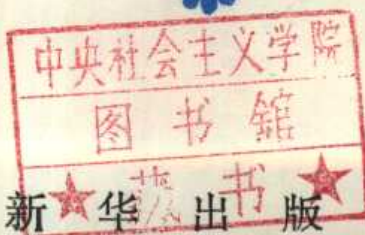 中央社会主义学院
图书馆
藏书
新华出版